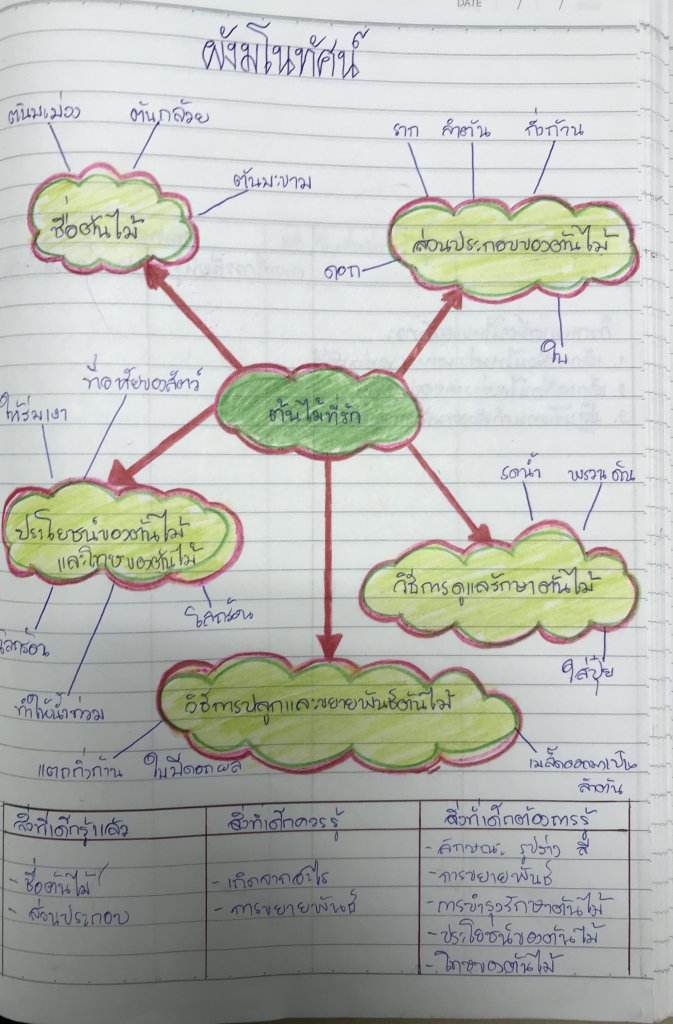 DATE
ผังมโนทัศน์
ต้นมะม่วง
ต้นกล้วย
ต้นมะขาม
ชื่อต้นไม้
ราก
ลำต้น
กิ่งก้าน
ส่วนประกอบของต้นไม้
ดอก
ใบ
ต้นไม้ที่รัก
ให้ร่มเงา
ที่อาศัยของสัตว์
ประโยชน์ของต้นไม้
และโทษของต้นไม้
โลกร้อน
ทำให้น้ำท่วม
รดน้ำ
พรวนดิน
วิธีการดูแลรักษาต้นไม้
ใส่ปุ๋ย
วิธีการปลูกและขยายพันธ์ต้นไม้
แตกกิ่งก้าน
ใบมีดอกผล
เมล็ดออกมาเป็น
ลำต้น
สิ่งที่เด็กรู้แล้ว
- ชื่อต้นไม้
- ส่วนประกอบ
สิ่งที่เด็กควรรู้
- เกิดจากอะไร
- การขยายพันธ์
สิ่งที่เด็กต้องการรู้
- ลักษณะ รูปร่าง สี
- การขยายพันธ์
- การบำรุงรักษาต้นไม้
- ประโยชน์ของต้นไม้
- โทษของต้นไม้